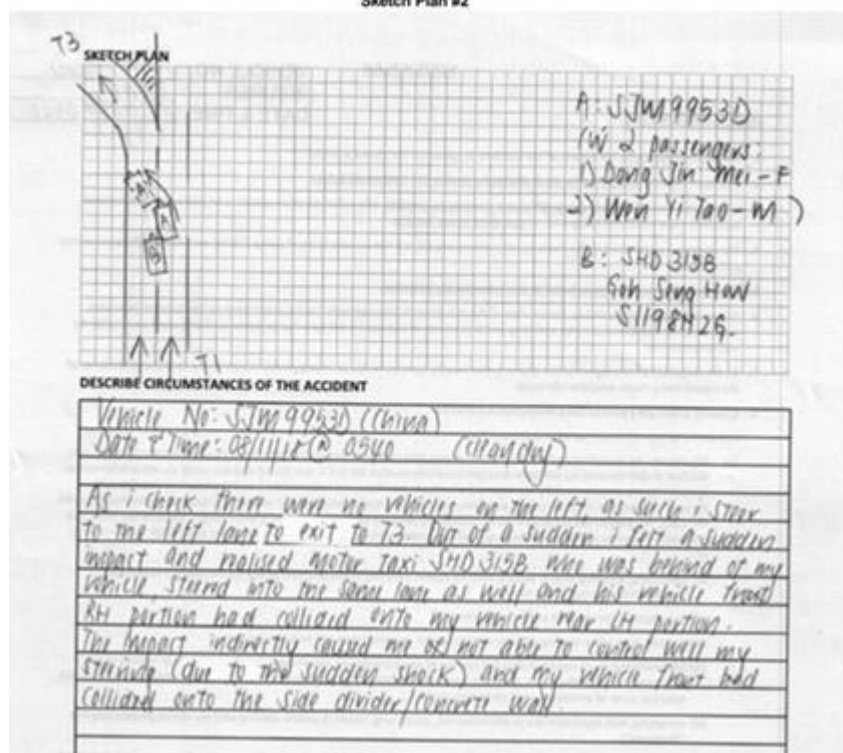 Sketch Plan #2
T3
SKETCH PLAN
A: SJM9953D
(W 2 passengers:
1) Dong Jin Mei - F
2) Wen Yi Tao - M)
B: SHD 315B
Goh Seng
T1
DESCRIBE CIRCUMSTANCES OF THE ACCIDENT
Vehicle No: SJM9953D (China)
Date & Time: 08/11/18 @ 0540 (clear/dry)
As i check there were no vehicles on the left, as such i steer
to the left lane to exit to T3. Out of a sudden i felt a sudden
impact and realised Motor Taxi SHD 315B who was behind of my
vehicle, steered into the same lane as well and his vehicle front
RH portion had collided onto my vehicle rear LH portion.
The impact indirectly caused me not able to control well my
steering (due to the sudden shock) and my vehicle front had
collided onto the side divider/concrete wall.